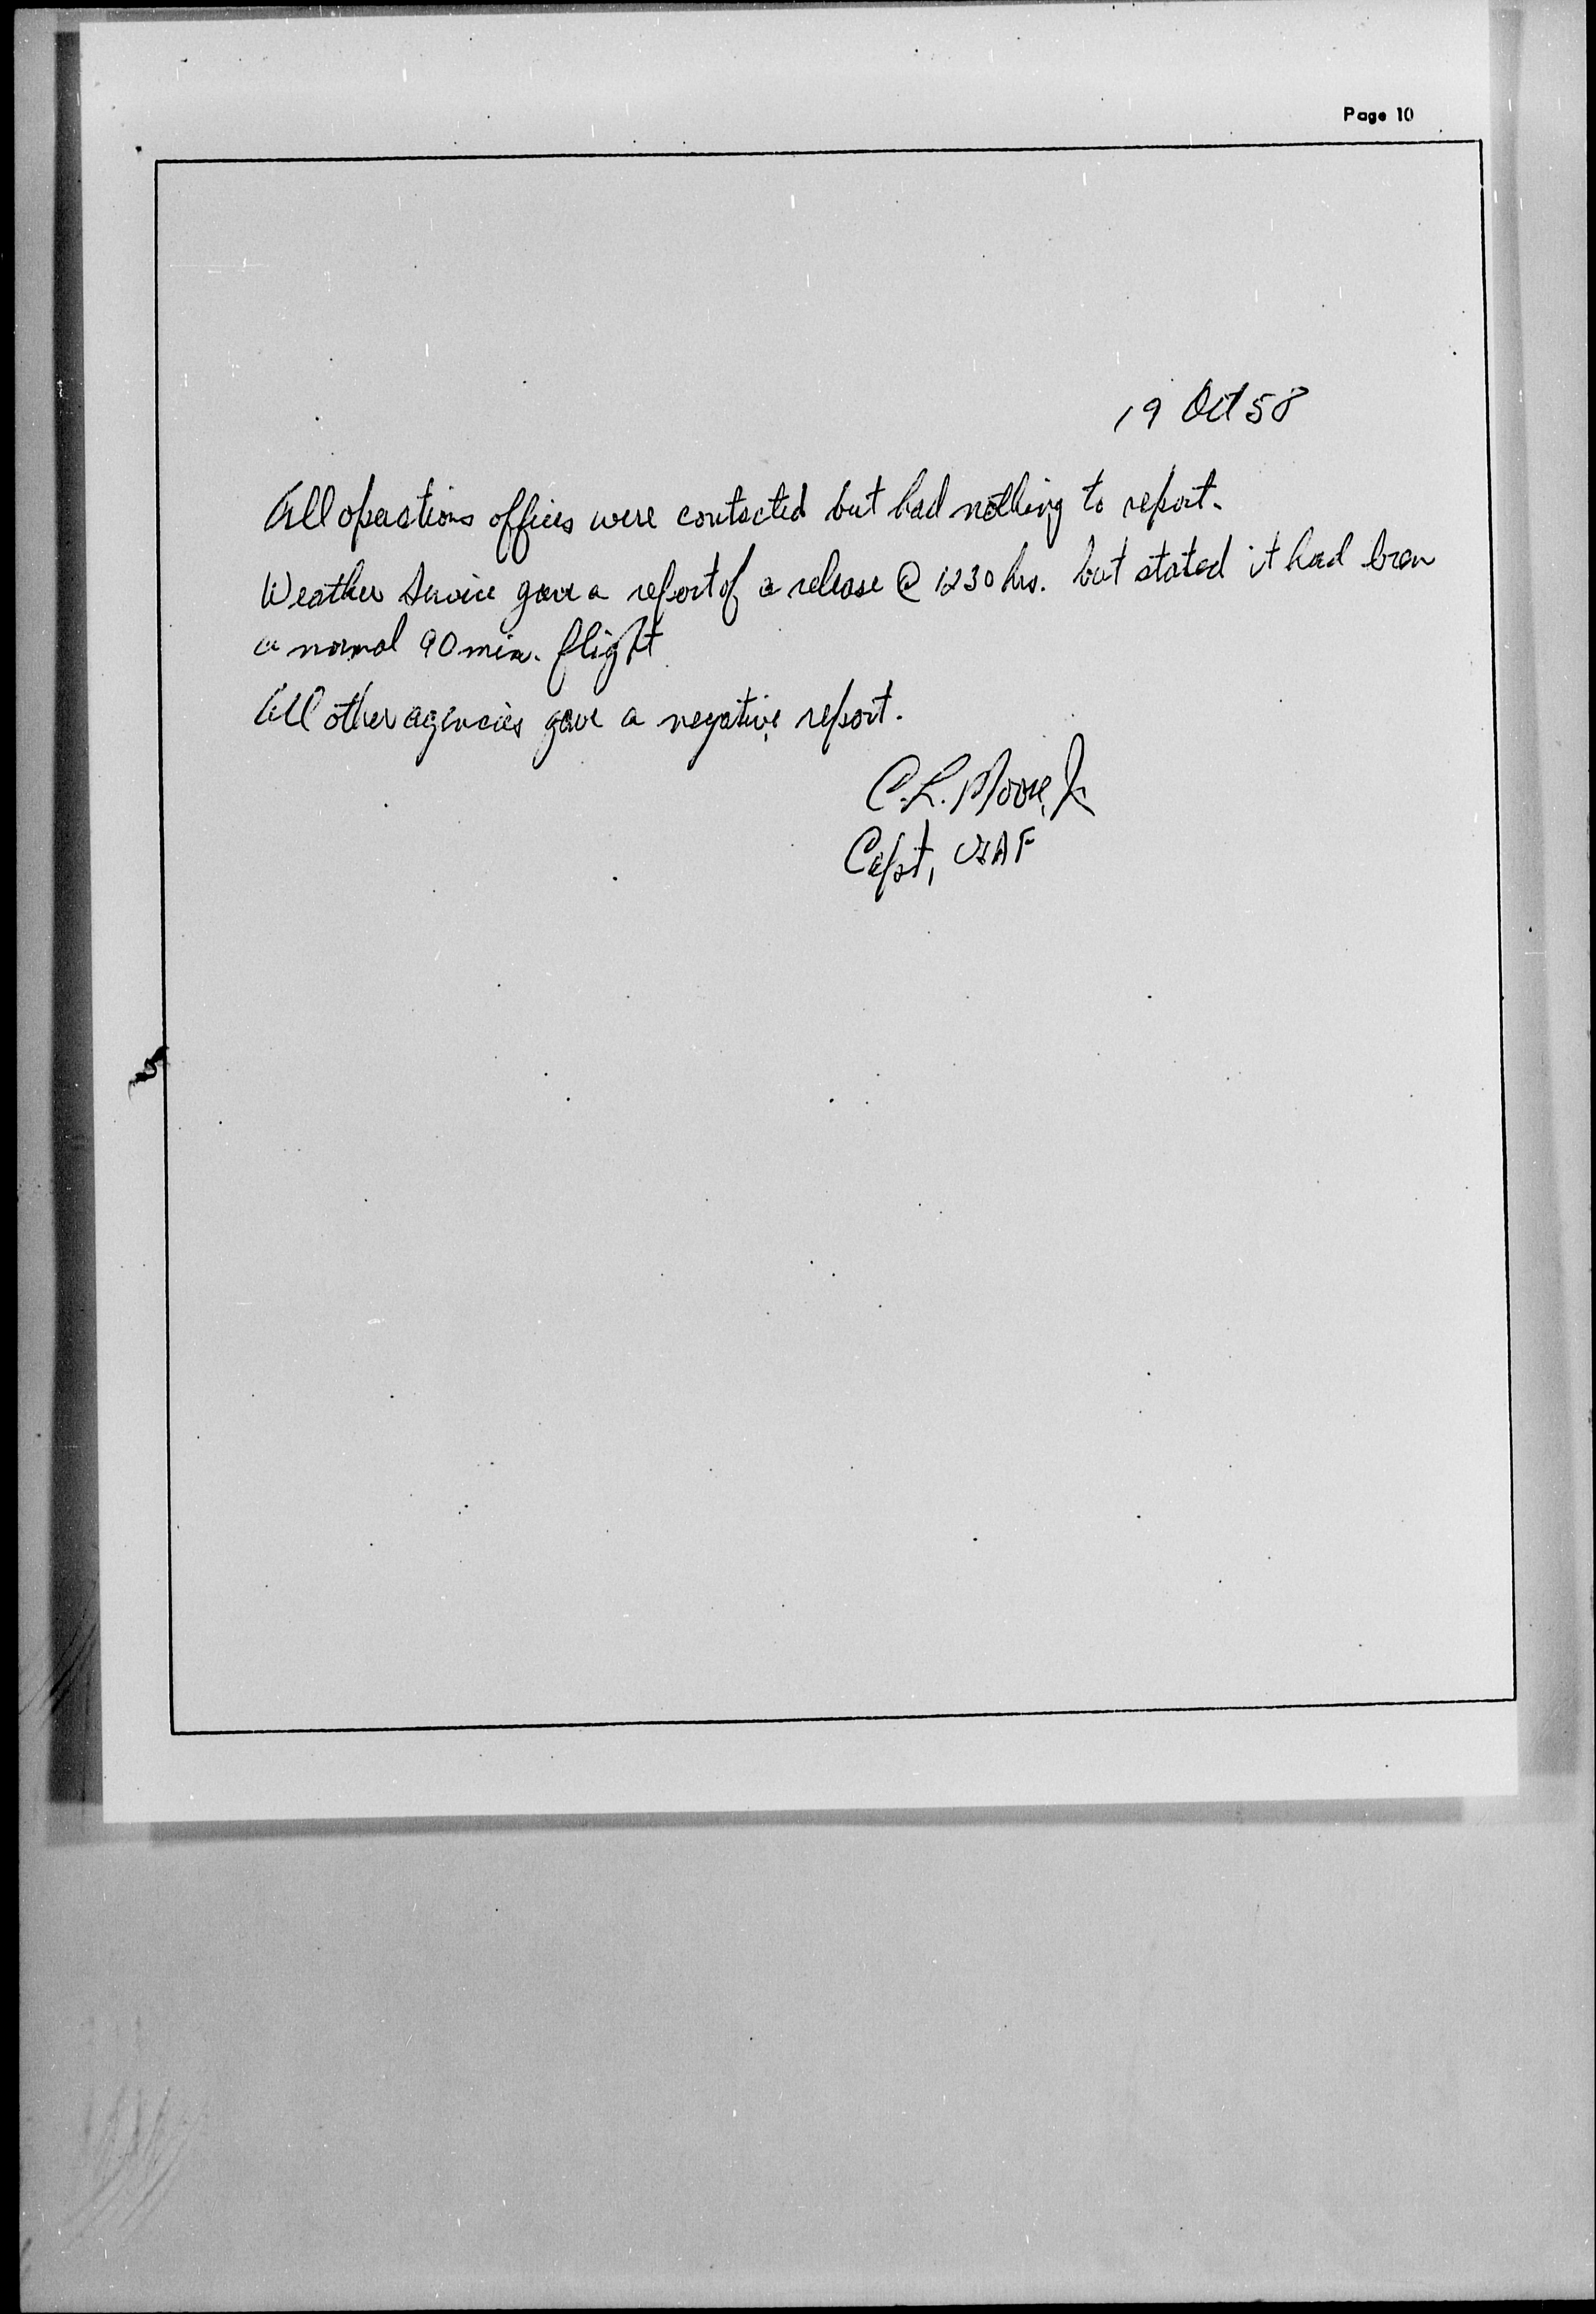 Page 10
19 Oct 58
All operations offices were contacted but had nothing to report.
Weather Service gave a report of a release @ 1230 hrs. but stated it had been
a normal 90 min. flight
All other agencies gave a negative report.
C.L. Moore, Jr
Capt, USAF